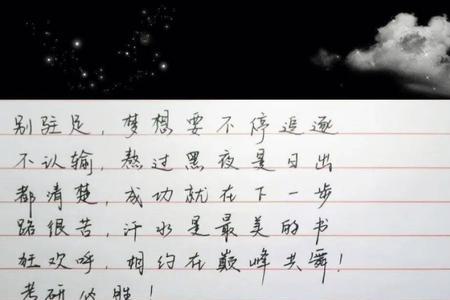 别驻足，梦想要不停追逐
不认输，熬过黑夜是日出
都清楚，成功就在下一步
路很苦，汗水是最美的书
狂欢呼，相约在巅峰共舞！
考研必胜！